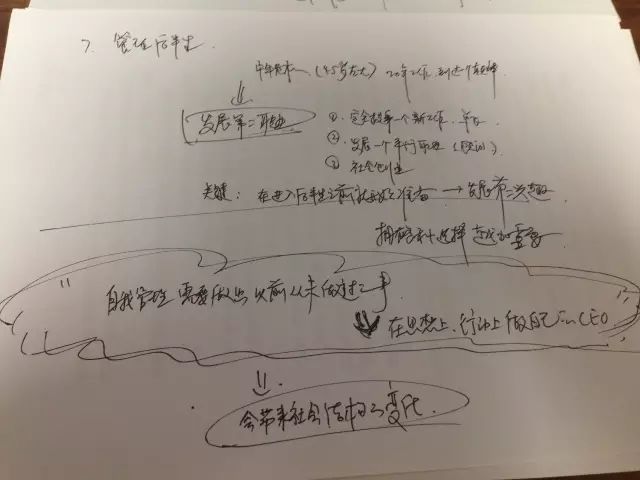 7. 管理后半生.
中年危机 (45岁左右) 20年工作, 到达个
发展第二职业
①. 完全从事一个新工作、单位
②. 发展一个平行职业 (顾问)
③ 社会创业
关键: 在进入后半生之前就要做好准备 → 发展第二兴趣
拥有多种选择 变得重要
"自我管理 需要做出 以前从未做过之事
在思想上、行动上做自己的CEO"
会带来社会结构的变化.